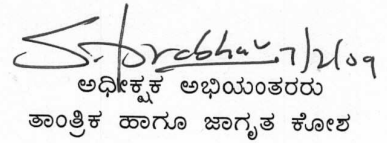 S. Prabhu 7/2/09
ಅಧೀಕ್ಷಕ ಅಭಿಯಂತರರು
ತಾಂತ್ರಿಕ ಹಾಗೂ ಜಾಗೃತ ಕೋಶ